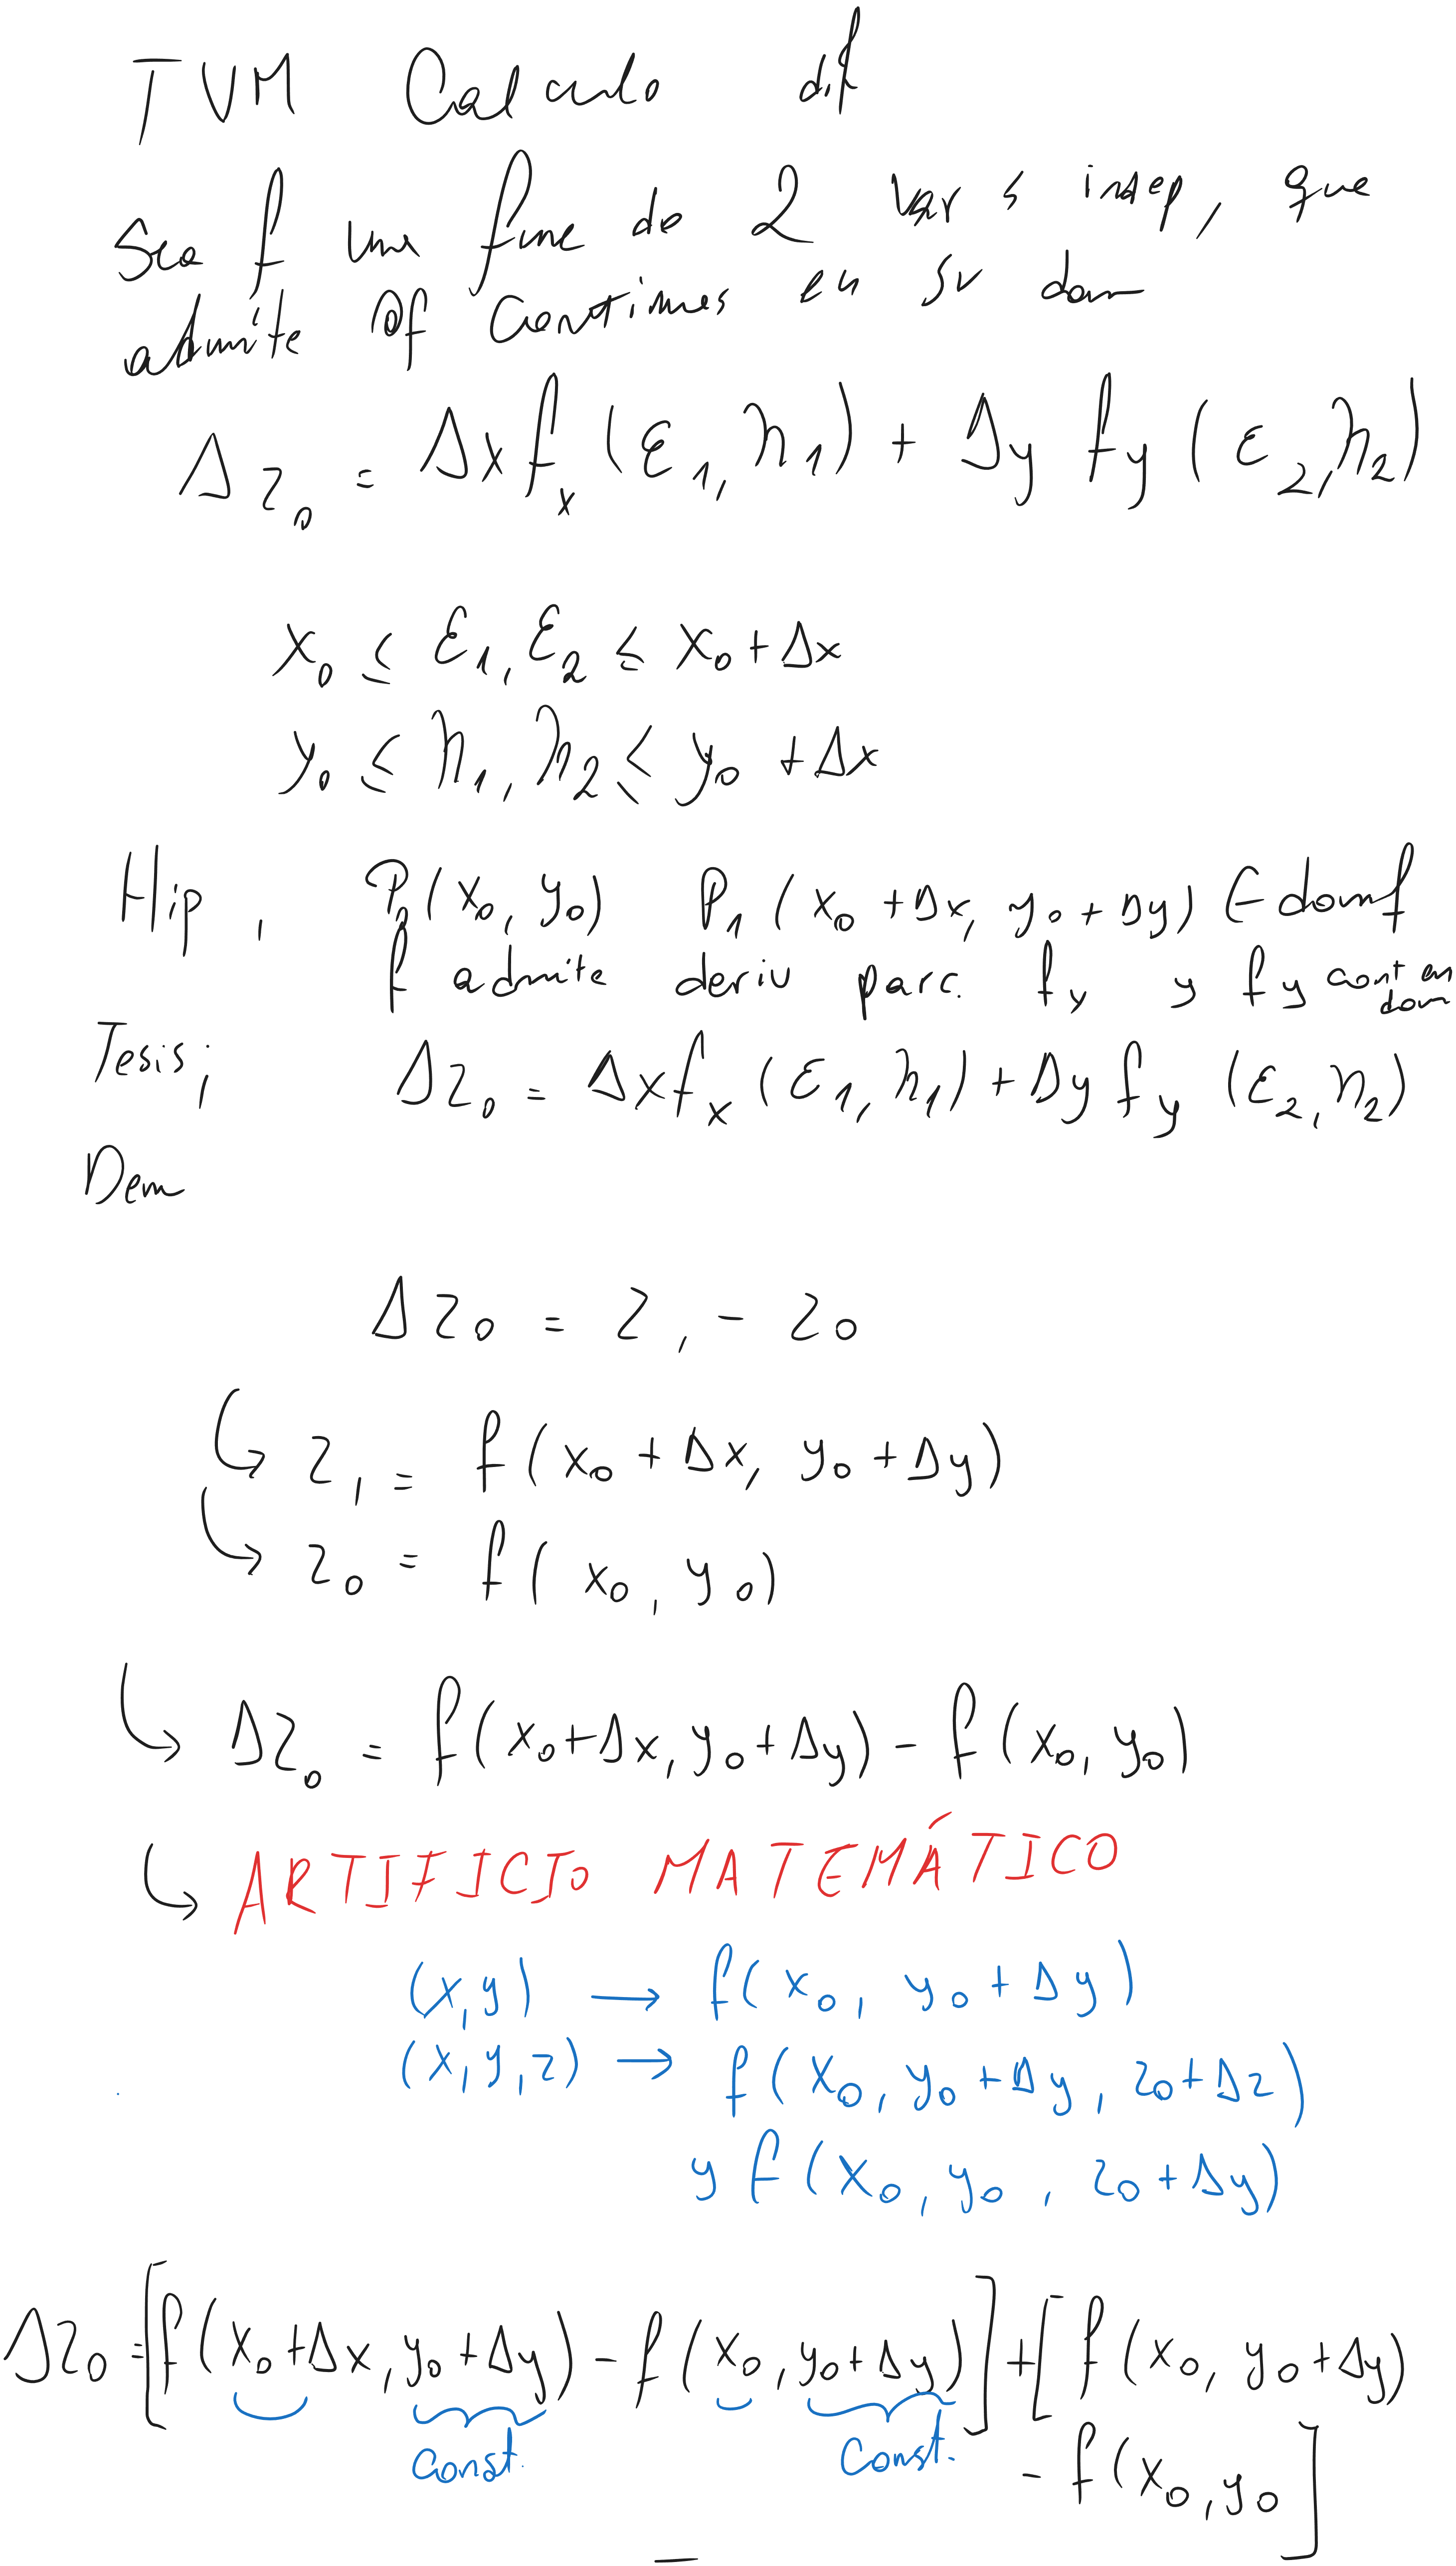 TVM Calculo dif
Sea f una func de 2 var s indep, que
admite ∂f continuas en su dom
Δz₀ = Δx fₓ (ε₁, η₁) + Δy fy (ε₂, η₂)
x₀ ≤ ε₁, ε₂ ≤ x₀ + Δx
y₀ ≤ η₁, η₂ ≤ y₀ + Δx
Hip, P₀(x₀, y₀) P₁ (x₀ + Δx, y₀ + Δy) ∈ dom f
f admite deriv parc. fₓ y fy cont en dom
Tesis; Δz₀ = Δx fₓ (ε₁, η₁) + Δy fy (ε₂, η₂)
Dem
Δz₀ = z₁ - z₀
↳ z₁ = f(x₀ + Δx, y₀ + Δy)
↳ z₀ = f(x₀, y₀)
↳ Δz₀ = f(x₀ + Δx, y₀ + Δy) - f(x₀, y₀)
↳ ARTIFICIO MATEMÁTICO
(x,y) → f(x₀, y₀ + Δy)
(x,y,z) → f(x₀, y₀ + Δy, z₀ + Δz)
y f(x₀, y₀, z₀ + Δy)
Δz₀ = [f(x₀ + Δx, y₀ + Δy) - f(x₀, y₀ + Δy)] + [f(x₀, y₀ + Δy)
const. const.
- f(x₀, y₀]